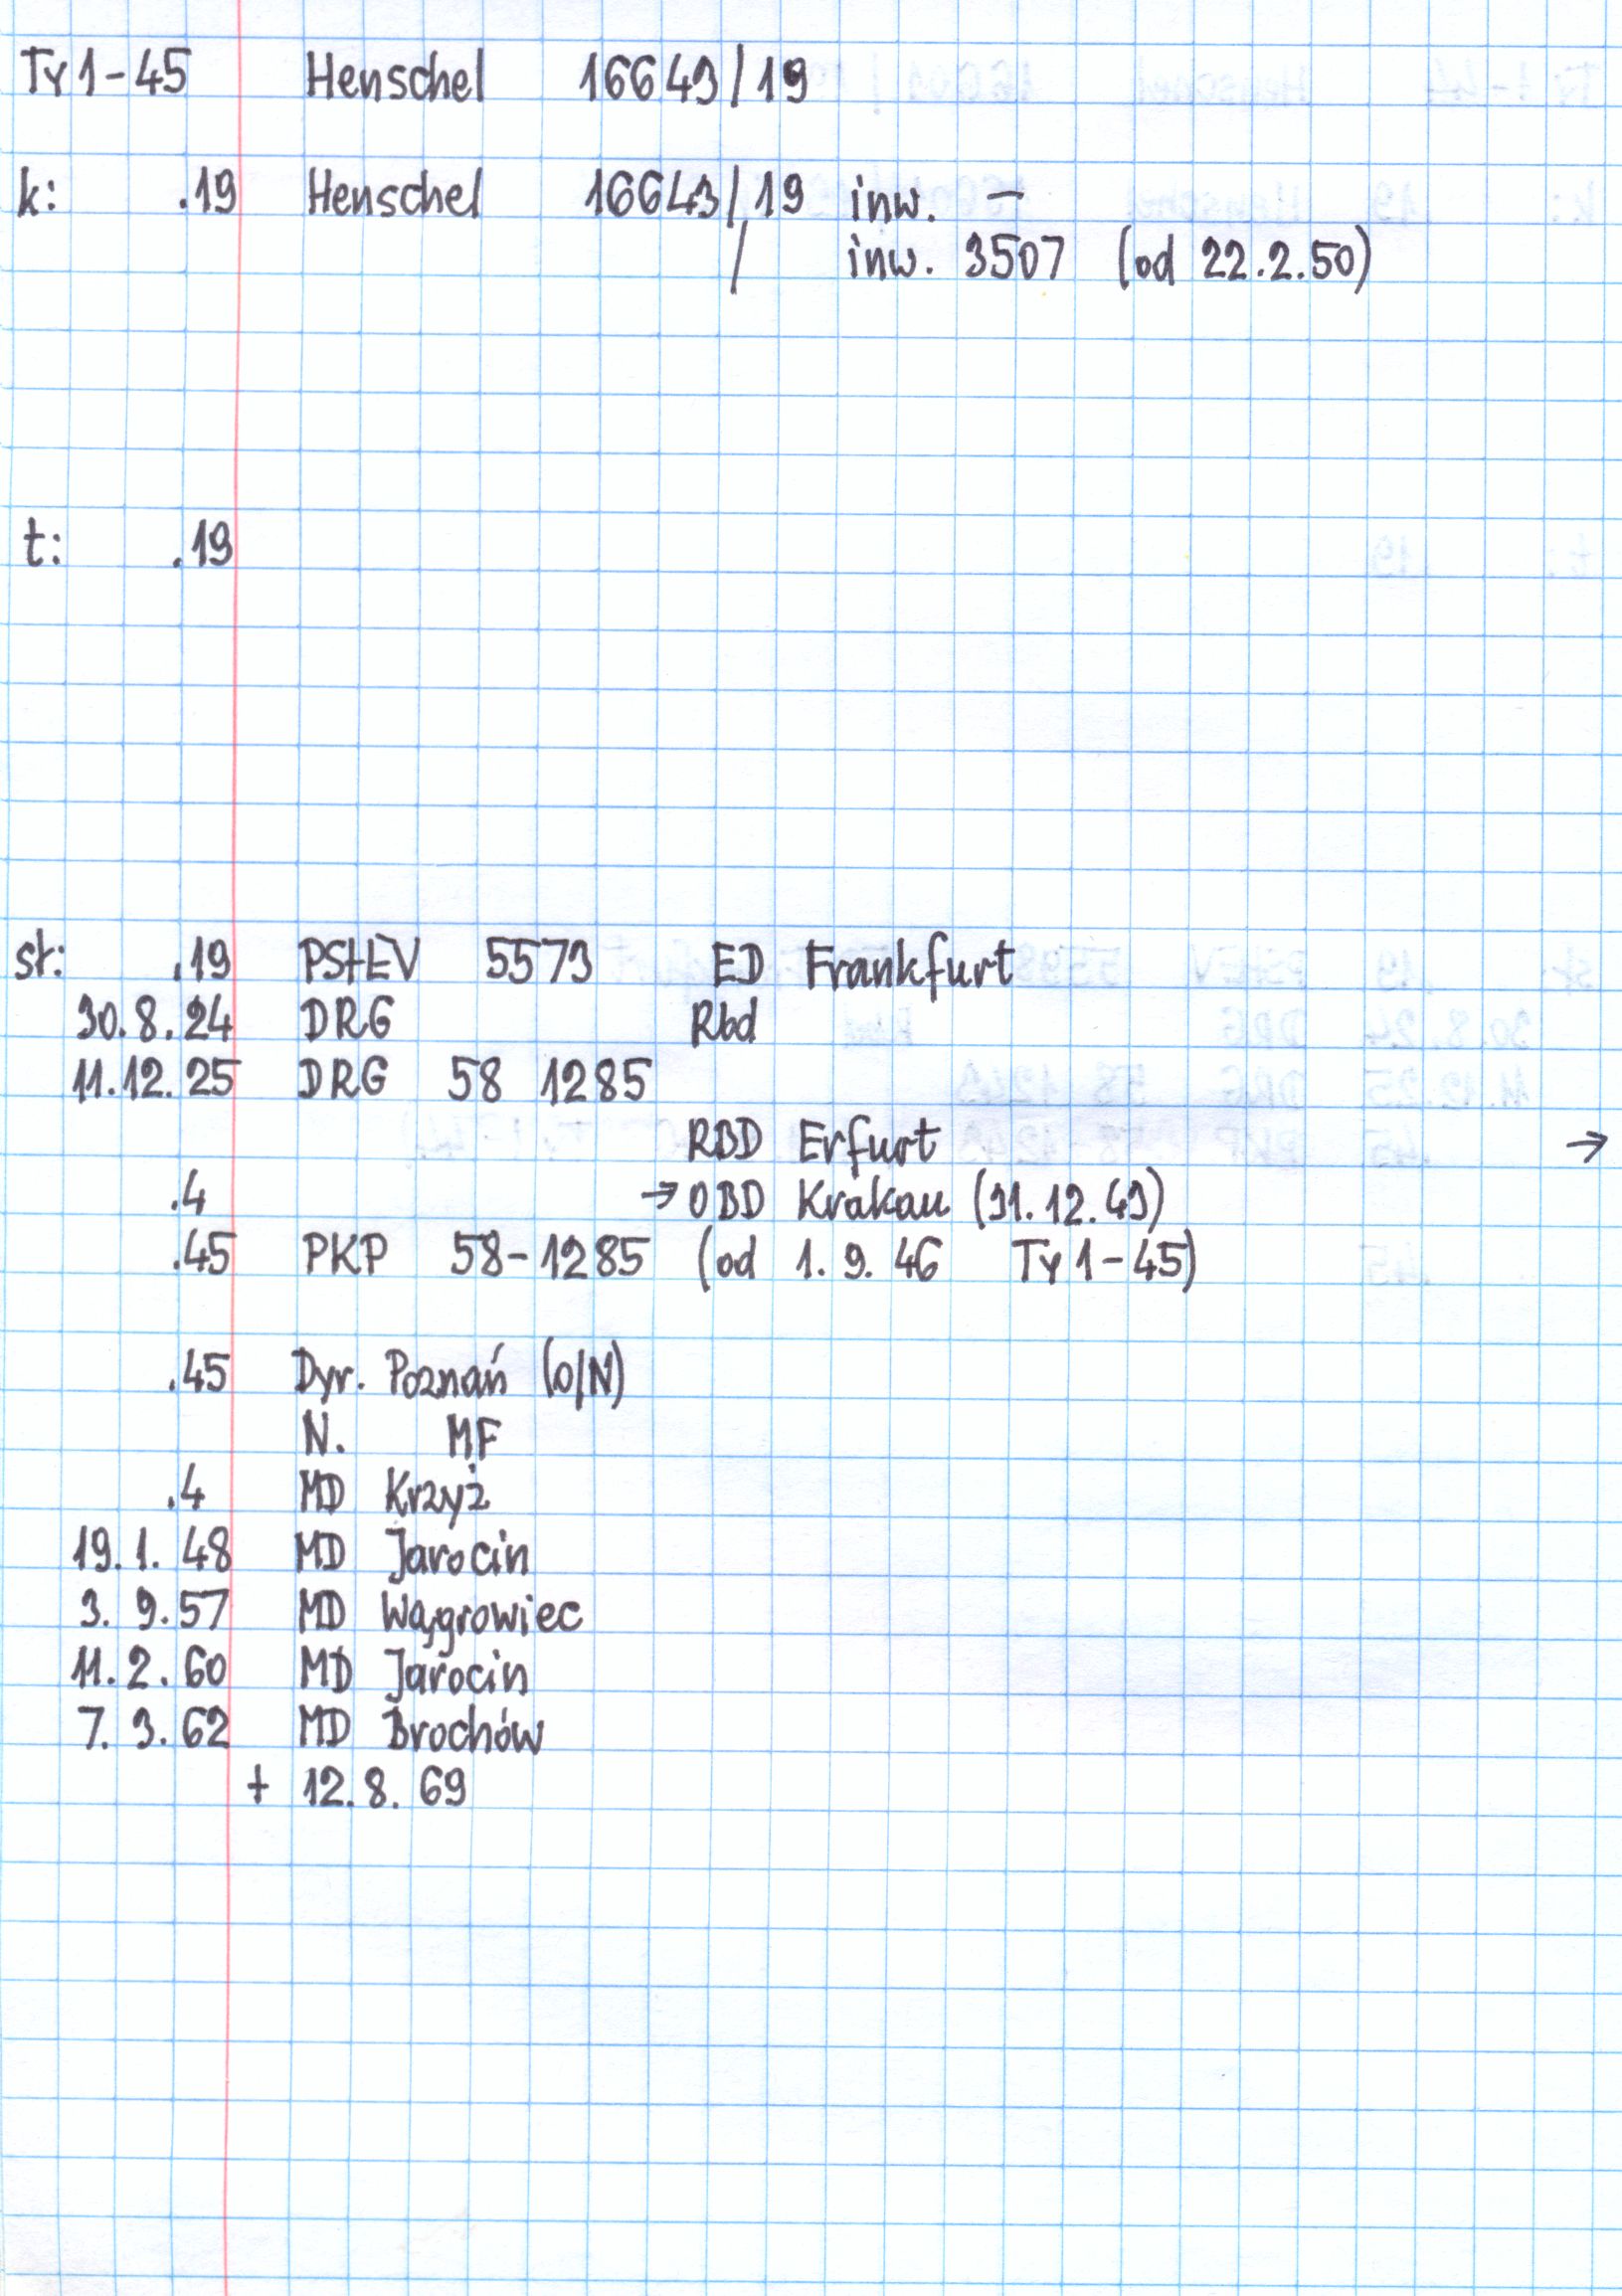 Ty1-45 Henschel 16643/19
k: .19 Henschel 16643/19 inw. –
/ inw. 3507 (od 22.2.50)
t: .19
st: .19 PStEV 5573 ED Frankfurt
30.8.24 DRG Rbd
11.12.25 DRG 58 1285
RBD Erfurt →
.4 → OBD Krakau (31.12.43)
.45 PKP 58-1285 (od 1.9.46 Ty1-45)
.45 Dyr. Poznań (O/N)
N. MF
.4 MD Krzyż
19.1.48 MD Jarocin
3.9.57 MD Wągrowiec
11.2.60 MD Jarocin
7.3.62 MD Brochów
+ 12.8.69